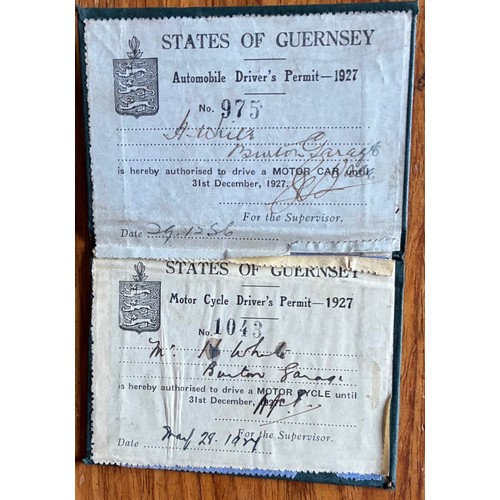 STATES OF GUERNSEY
Automobile Driver's Permit—1927
No. 975
H. White
Burton Garage
is hereby authorised to drive a MOTOR CAR until
31st December, 1927.
For the Supervisor.
Date 29.12.26
STATES OF GUERNSEY
Motor Cycle Driver's Permit—1927
No. 1043
Mr H White
Burton Garage
is hereby authorised to drive a MOTOR CYCLE until
31st December, 1927.
For the Supervisor.
Date May 29. 1927